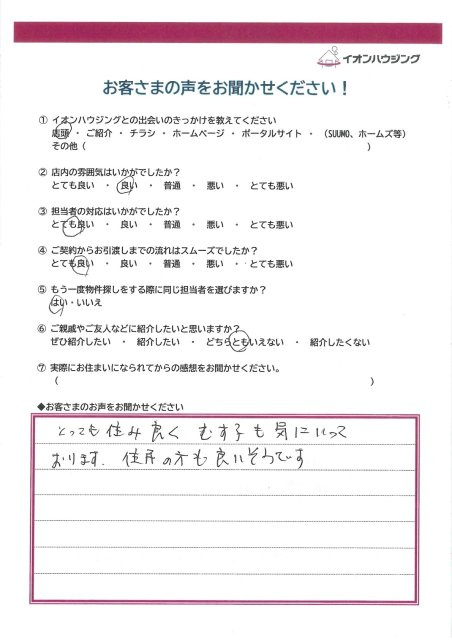 イオンハウジング
お客さまの声をお聞かせください！
① イオンハウジングとの出会いのきっかけを教えてください
店頭 ・ ご紹介 ・ チラシ ・ ホームページ ・ ポータルサイト ・ （SUUMO、ホームズ等）
その他（ ）
② 店内の雰囲気はいかがでしたか？
とても良い ・ 良い ・ 普通 ・ 悪い ・ とても悪い
③ 担当者の対応はいかがでしたか？
とても良い ・ 良い ・ 普通 ・ 悪い ・ とても悪い
④ ご契約からお引渡しまでの流れはスムーズでしたか？
とても良い ・ 良い ・ 普通 ・ 悪い ・ とても悪い
⑤ もう一度物件探しをする際に同じ担当者を選びますか？
はい・いいえ
⑥ ご親戚やご友人などに紹介したいと思いますか？
ぜひ紹介したい ・ 紹介したい ・ どちらともいえない ・ 紹介したくない
⑦ 実際にお住まいになられてからの感想をお聞かせください。
（ ）
◆お客さまのお声をお聞かせください
とっても 住み良く むす子も 気に入って
おります。 住所の方も良いそうです